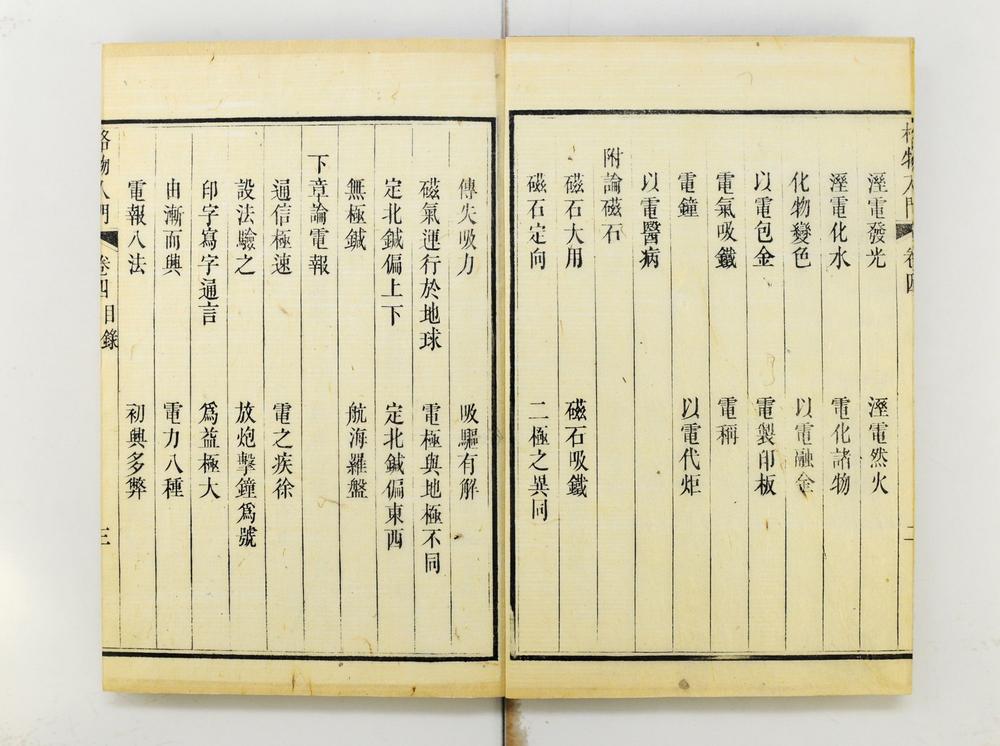 溼電發光　溼電然火
溼電化水　電化諸物
化物變色　以電融金
以電包金　電製印板
電氣吸鐵　電稱
電鐘　以電代炬
以電醫病
附論磁石
磁石大用　磁石吸鐵
磁石定向　二極之異同
格物入門　卷四　二
傳失吸力　吸驅有解
磁氣運行於地球　電極與地極不同
定北鍼偏上下　定北鍼偏東西
無極鍼　航海羅盤
下章論電報
通信極速　電之疾徐
設法驗之　放炮擊鐘爲號
印字寫字通言　爲益極大
由漸而興　電力八種
電報八法　初興多弊
格物入門　卷四目錄　三